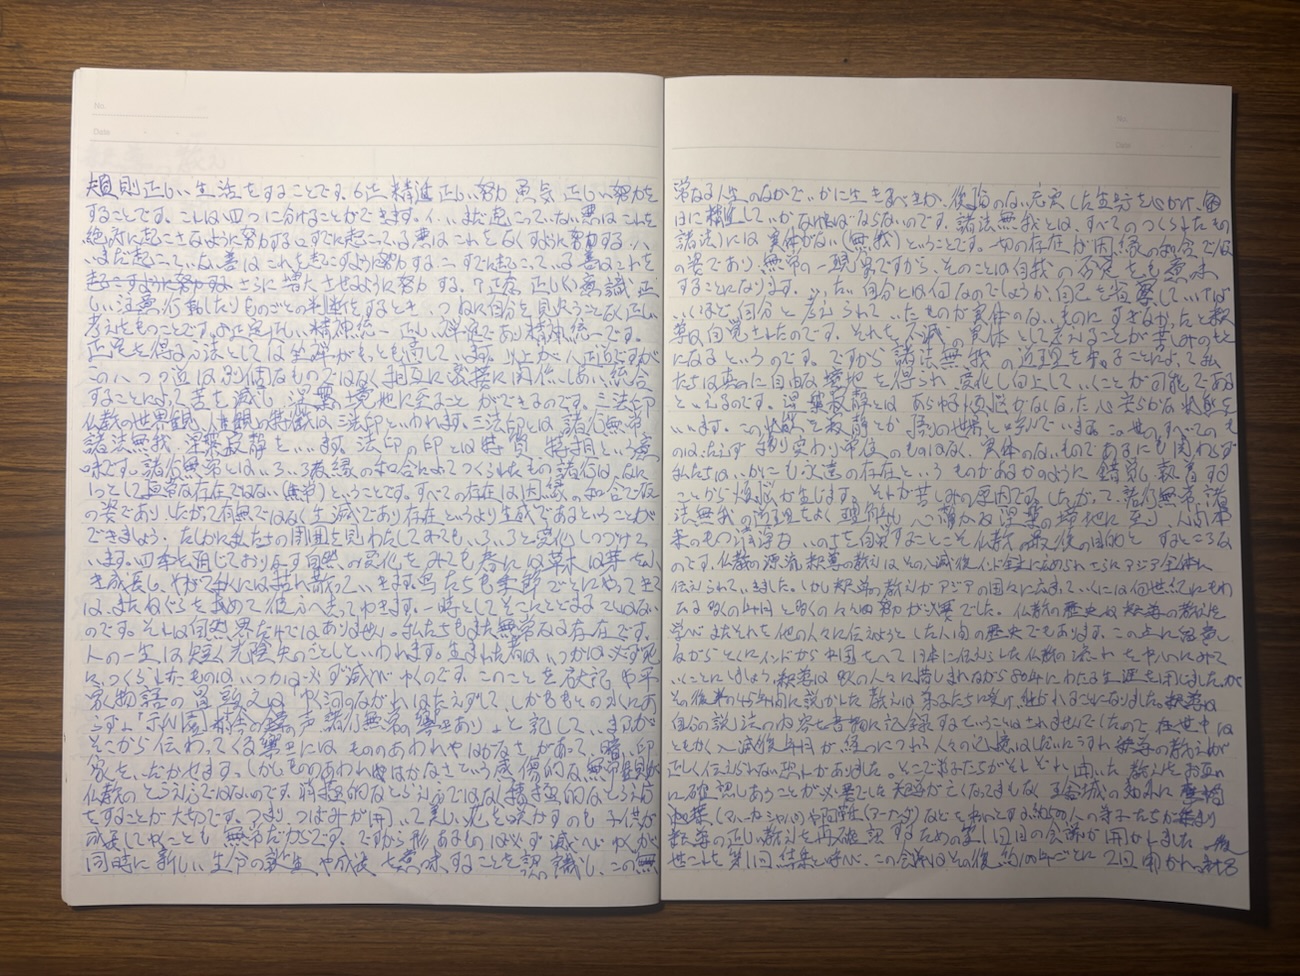 No.
Date
規則正しい生活をすることです。6正精進 正しい努力 勇気 正しい努力を
することです。これは四つに分けることができます。イ、いまだ起こっていない悪はこれを
絶対に起こさないように努力する ロすでに起こっている悪はこれをなくすように努力する、ハ
いまだ起こっていない善はこれを起こすように努力する ニすでに起こっている善はこれを
さらに増大させるように努力する。7正念 正しい意識 正
しい注意 行動したりものごとの判断をするとき、つねに自分を見失うことなく正しい
考えをもつことです。8正定 正しい精神統一 正しい禅定であり精神統一です。
正定を得る方法としては坐禅がもっとも適しています。以上が八正道ですが
この八つの道は別個なものではなく相互に密接に関係しあい、統合
することによって苦を滅し涅槃の境地に至ることができるのです。三法印
仏教の世界観、人生観の特徴は三法印といわれます。三法印とは諸行無常
諸法無我 涅槃寂静をいいます。法印の印とは特質、特相という意
味です。諸行無常とはいろいろな縁の和合によってつくられたもの 諸行は、なに
1つとして恒常な存在ではない(無常)ということです。すべての存在は因縁の和合で仮
の姿であり したがって存無ではなく生滅であり存在というより生成であるということが
できましょう。たしかに私たちの周囲を見わたしてみても、いろいろと変化しつづけて
います。四季を通じておりなす自然の変化をみても春には草木は芽をふ
き成長し、やがて秋には枯れ散っていきます。鳥たちも季節ごとにやってきて
は、またねぐらを求めて彼方へ去ってゆきます。一時としてそこにとどまるではない
のです。それは自然界だけではありません。私たちもまた無常なる存在です。
人の一生は短く光陰矢のごとしといわれます。生まれた者はいつかは必ず死
に、つくられたものはいつかは必ず滅びゆくのです。このことを方丈記や平
家物語の冒頭文は「ゆく河のながれはたえずして、しかももとの水にあ
らず」「祇園精舎の鐘の声 諸行無常の響きあり」と記していますが
そこから伝わってくる響きにはもののあわれやはかなさがあって、暗い印
象を、いだかせます。しかしもののあわれやはかなさという感傷的な無常観が
仏教のとらえ方ではないのです。消極的なとらえ方ではなく積極的なとらえ方
をすることが大切です。つまり、つぼみが開いて美しい花を咲かすのも 子供が
成長してゆくことも無常だからです。ですから形あるものは必ず滅びゆくが
同時に新しい生命の誕生や成法を意味することを認識し、この無
No.
Date
常なる人生のなかでいかに生きるべきか、後悔のない充実した生き方を心がけ、毎
日に精進していかなければならないのです。諸法無我とは、すべてのつくられたもの
(諸法)には実体がない(無我)ということです。一切の存在が因縁の和合で仮
の姿であり、無常の一現象ですから、そのことは自我の否定をも意味
することになります。いったい自分とは何なのでしょうか、自己を省察していけば
いくほど、自分と考えられていたものが実体のないものにすぎなかったと釈
尊は自覚されたのです。それを不滅の実体として考えることが苦しみのもと
になるというのです。ですから諸法無我の道理を知ることによって私
たちは真に自由な境地を得られ、変化し向上していくことが可能である
といえるのです。涅槃寂静とはあらゆる煩悩がなくなった心安らかな状態を
いいます。この状態を寂静とか悟りの世界と呼んでいます。この世のすべてのも
のはたえず移り変わり常住のものはなく、実体のないものであるにも関わらず
私たちは、いかにも永遠の存在というものがあるかのように錯覚し執着する
ことから煩悩が生じます。それが苦しみの原因です。したがって、諸行無常 諸
法無我の道理をよく理解し、心静かな涅槃の境地に至り、人間本
来のもつ清浄ないのちを自覚することこそ仏教の最後の目的とするところな
のです。仏教の源流 釈尊の教えはその入滅後インド全土に広められ さらにアジア全体に
伝えられていきました。しかし釈尊の教えがアジアの国々に広まっていくには何世紀にもわ
たる多くの年月と多くの人々の努力が必要でした。仏教の歴史は釈尊の教えを
学び またそれを他の人々に伝えようとした人間の歴史でもあります。この点に留意し
ながら とくにインドから中国をへて日本に伝えられた仏教の流れを中心にみて
いくことにしましょう。釈尊は多くの人々に惜しまれながら80年にわたる生涯を閉じましたが
その後約45年間に説かれた教えは弟子たちに受け継がれることになりました。釈尊は
自分の説く法の内容を書物に記録するということはされませんでしたので 在世中は
ともかく 入滅後年月が経つにつれ 人々の記憶はしだいにうすれ 釈尊の教えが
正しく伝えられない恐れがありました。そこで弟子たちがそれぞれ聞いた教えをお互い
に確認しあうことが必要でした 釈尊が亡くなってまもなく 王舎城の効外に
迦葉(マハーカーシャパ)や阿難(アーナンダ)などをはじめとする約500人の弟子たちが集まり
釈尊の正しい教えを再確認するための第1回目の会議が開かれました 後
世これを第1回結集と呼び、この会議はその後、約100年ごとに2回開かれ